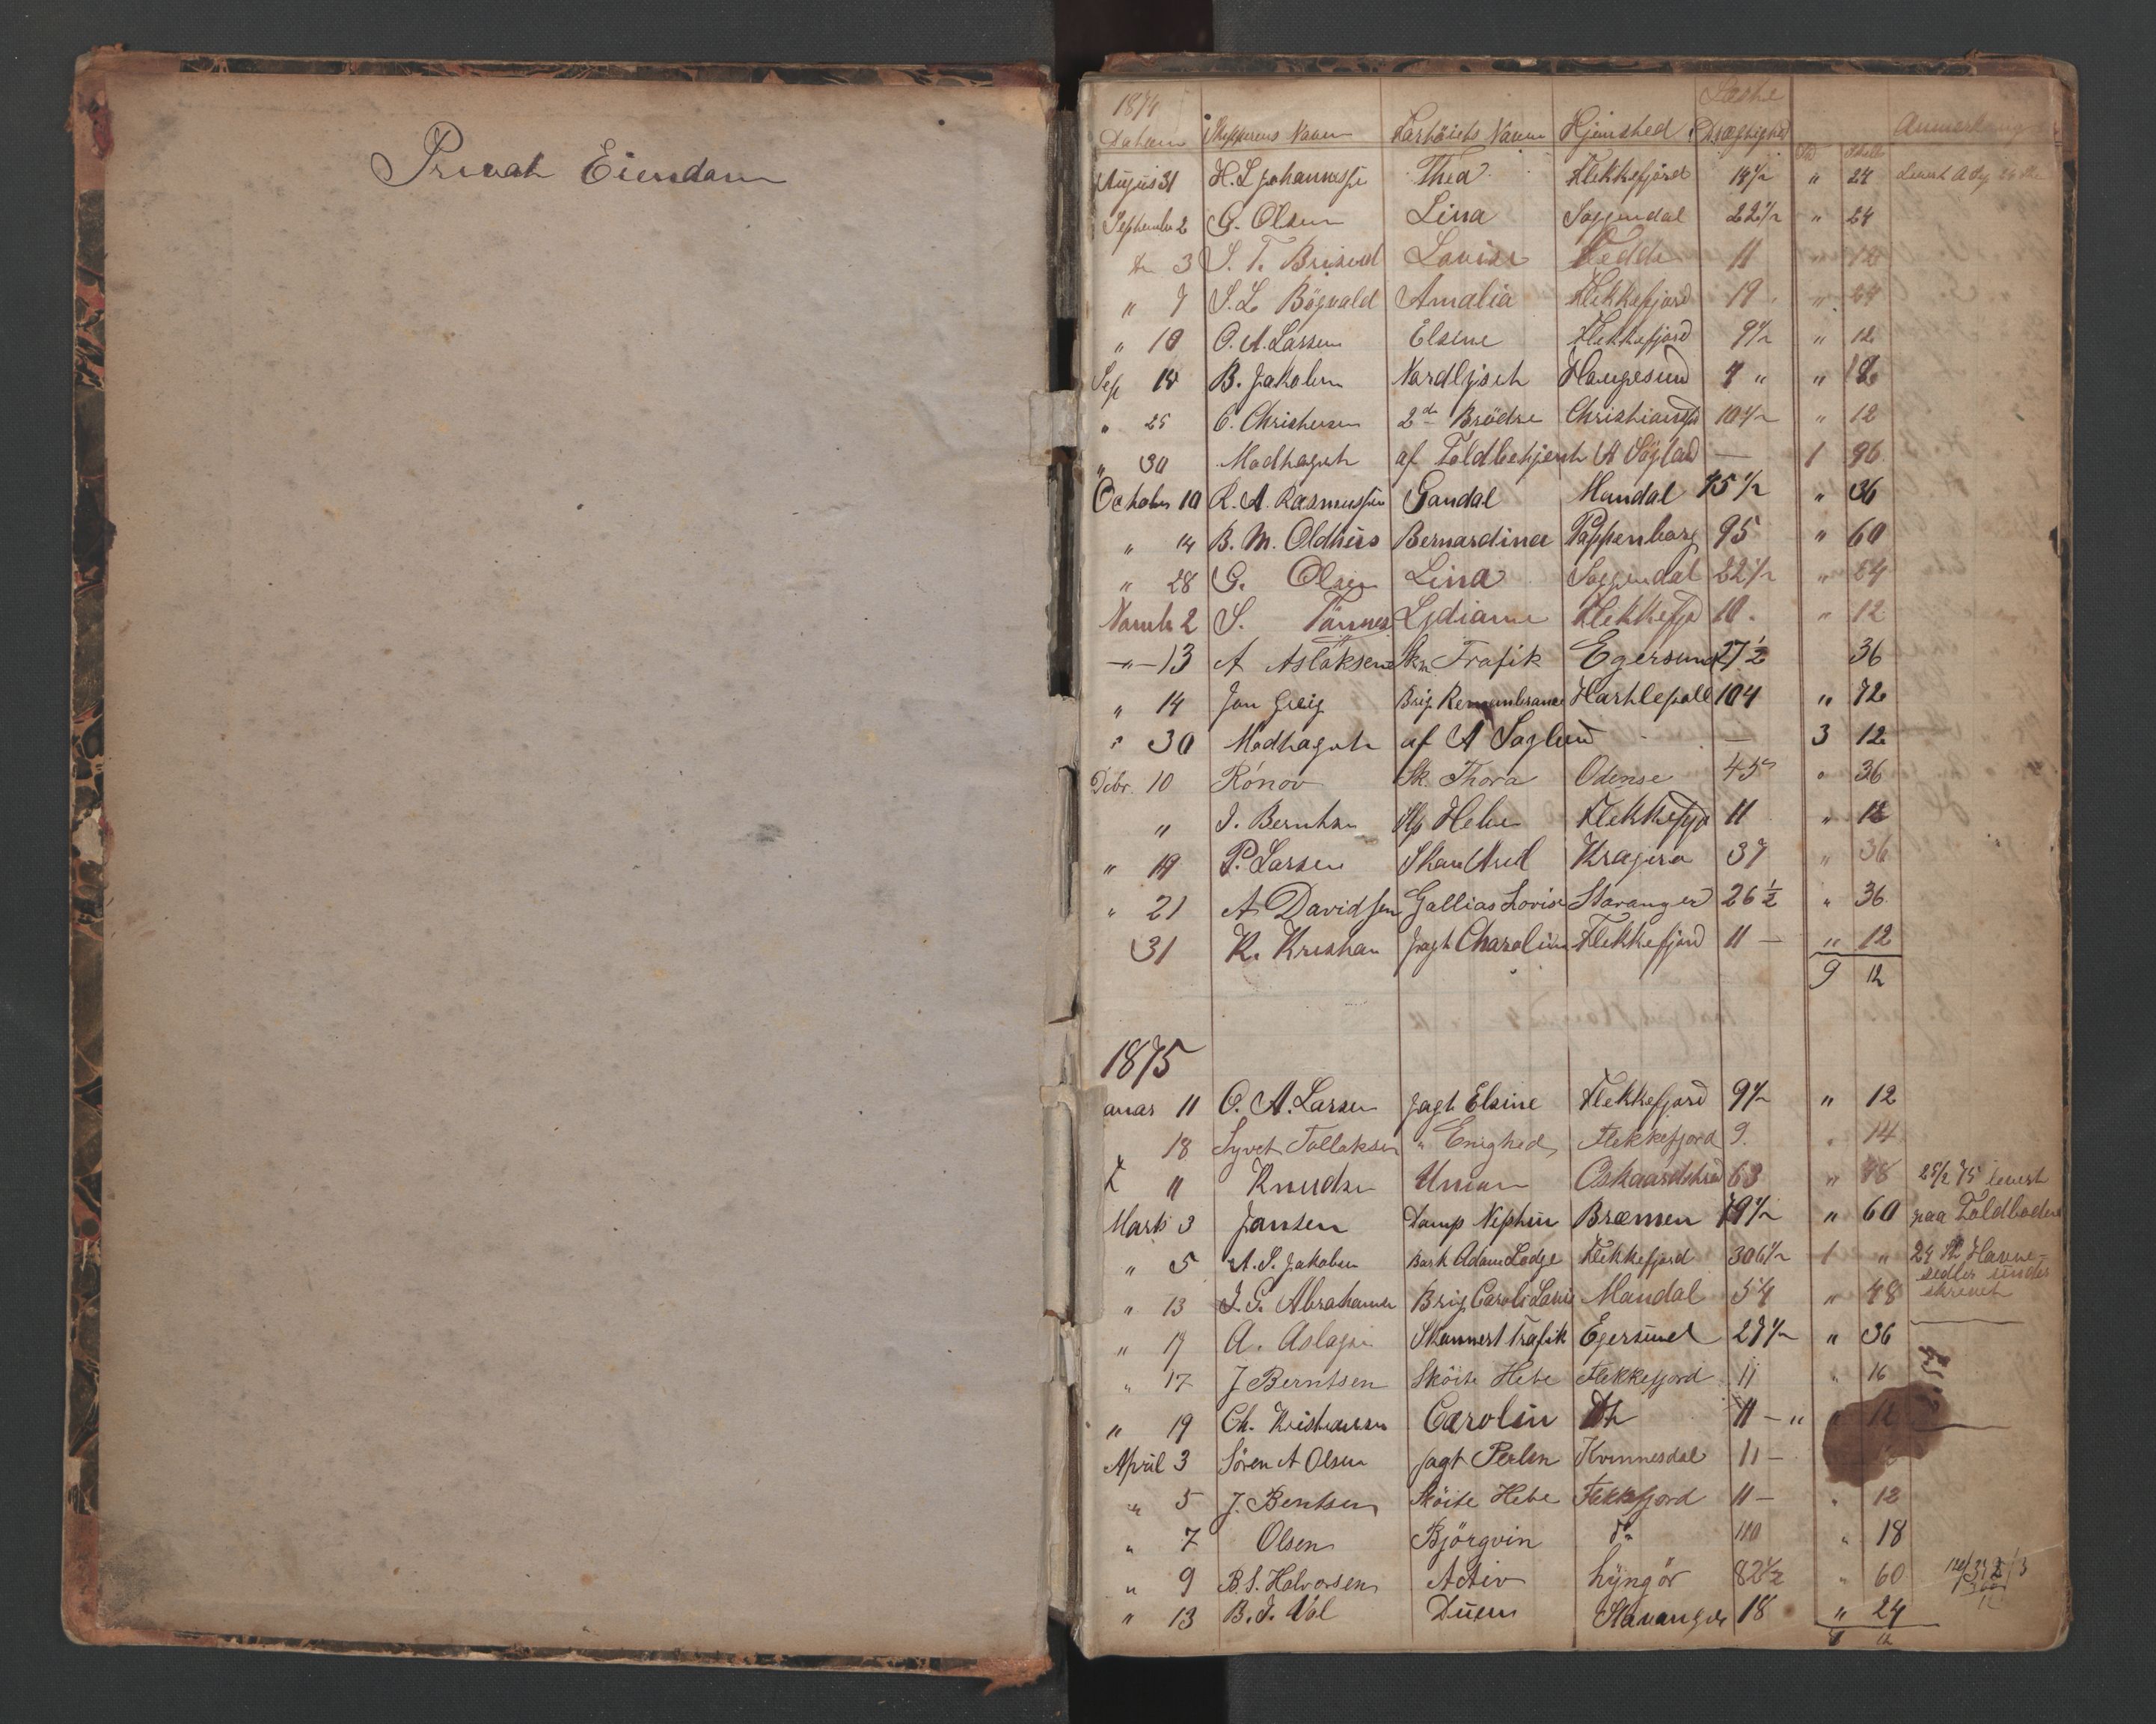 Privat Eiendom
1874
Datum Skipperens Navn Fartöiets Navn Hjemsted Drægtighed Anmerkning
August 31 H. L. Johannessen Thea Flekkefjord 14 1/2 " 24
September 2 G. Olsen Lina Soggendal 22 1/2 " 24
3 S. T. Louise Fedde 11 " 12
" 7 S. L. Bögvald Amalia Flekkefjord 19 " 24
" 10 O. A. Larsen Elsine Flekkefjord 9 1/2 " 12
Sep 18 B. Jakobsen Haugesund 7 " "
" 25 C. Christensen 2de Brödre 10 1/2 " 12
" 30 Modtaget af Toldbetjent A Söglund — 1 96
October 10 R. A. Rasmussen Gandal Mandal " 36
" 14 B. M. Oldhüs Bernardina Pappenborg 95 " 60
" 28 G. Olsen Lina Soggendal 22 1/2 " 24
Novmb 2 S. Tönnes Lydiane Flekkefjo 10 " 12
—"— 13 A Aslaksen Skn Trafik Egersund 27 1/2 36
" 14 Jon Greig Brig Remembrance Hartlepoll 104 " 72
" 30 Modtaget af A Soglund — 3 12
Debr. 10 Rönov Sk. Thora Odense 45 " 36
" J. Berntsen Hebe Flekkefjo 11 " 12
" 19 P. Larsen Kragerø 37 " 36
" 21 A Davidsen Gallias Lovise Stavanger 26 1/2 " 36
31 K. Kristian Jagt Charoline Flekkefjord 11 — " 12
9 12
1875
anuar 11 O. A. Larsen Jagt Elsine Flekkefjord 9 1/2 " 12
18 Syvert Tollaksen " Enighed Flekkefjord 9. " 14
" Knudsen Union 63 " 48 25/2 75 levert
Marts 3 Jansen Damp Neptün Bræmen 79 1/2 " 60 paa Toldboden
" 5 A. S. Jakobsen Bark Adam Lodge Flekkefjord 306 1/2 1 " 24 Havne-
sedler under
" 13 J. G. Abrahamsen Brig Mandal 54 " 48 skrevet
" 17 A. Aslagsen Skonnert Trafik Egersund 27 1/2 " 36
" 17 J Berntsen Sköite Hebe Flekkefjord 11 " 16
" 19 Ch. Kristiansen Carolin Do 11 — " " 12
April 3 Sören A Olsen Jagt Perlen Kvinnesdal 11 —
" 5 J. Bentsen Sköite Hebe Flekkefjord 11 — " 12
" 7 Olsen Björgvin Do 110 " 18
" 9 B. S. Halvorsen Activ Lyngör 82 1/2 " 60
" 13 B. J. Val Duen Stavanger 18 " 24
8 12